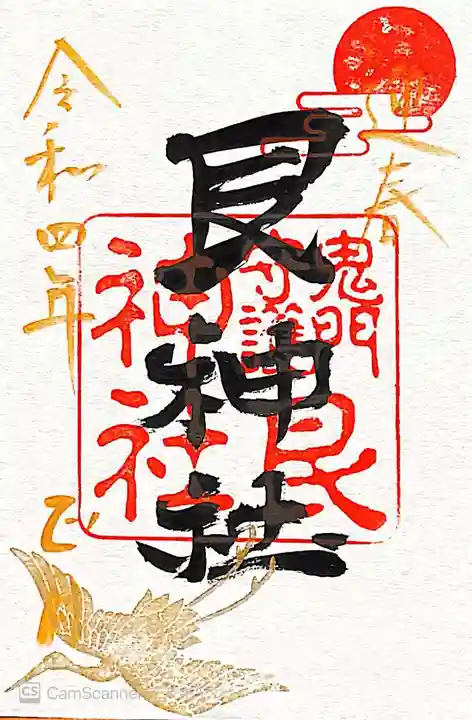 迎春
艮神社
鬼門
守護
艮
神社
令和四年
正
CS CamScanner